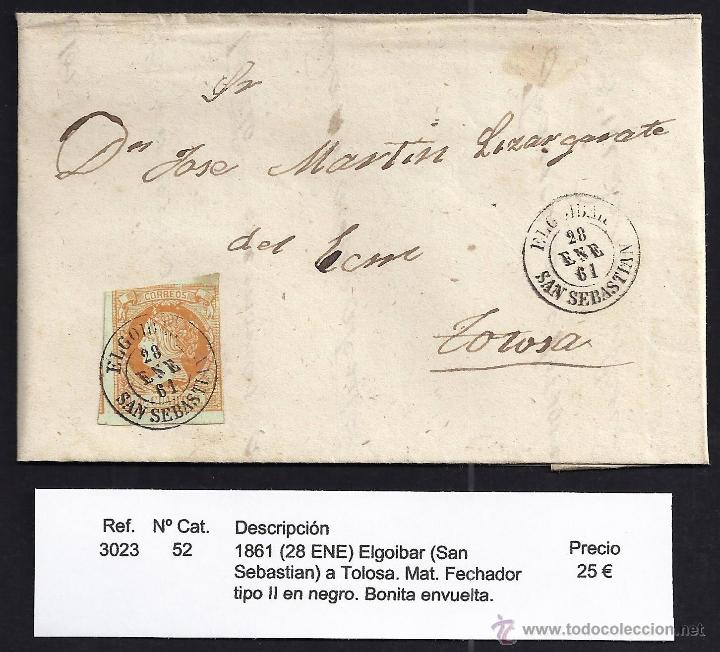 Sr
Dn Jose Martin Lizargarate
del Ecm
Tolosa
ELGOIBAR
28
ENE
61
SAN SEBASTIAN
CORREOS
ELGOIB
28
ENE
61
SAN SEBASTIA
Ref. Nº Cat. Descripción Precio
3023 52 1861 (28 ENE) Elgoibar (San 25 €
Sebastian) a Tolosa. Mat. Fechador
tipo II en negro. Bonita envuelta.
© www.todocoleccion.net